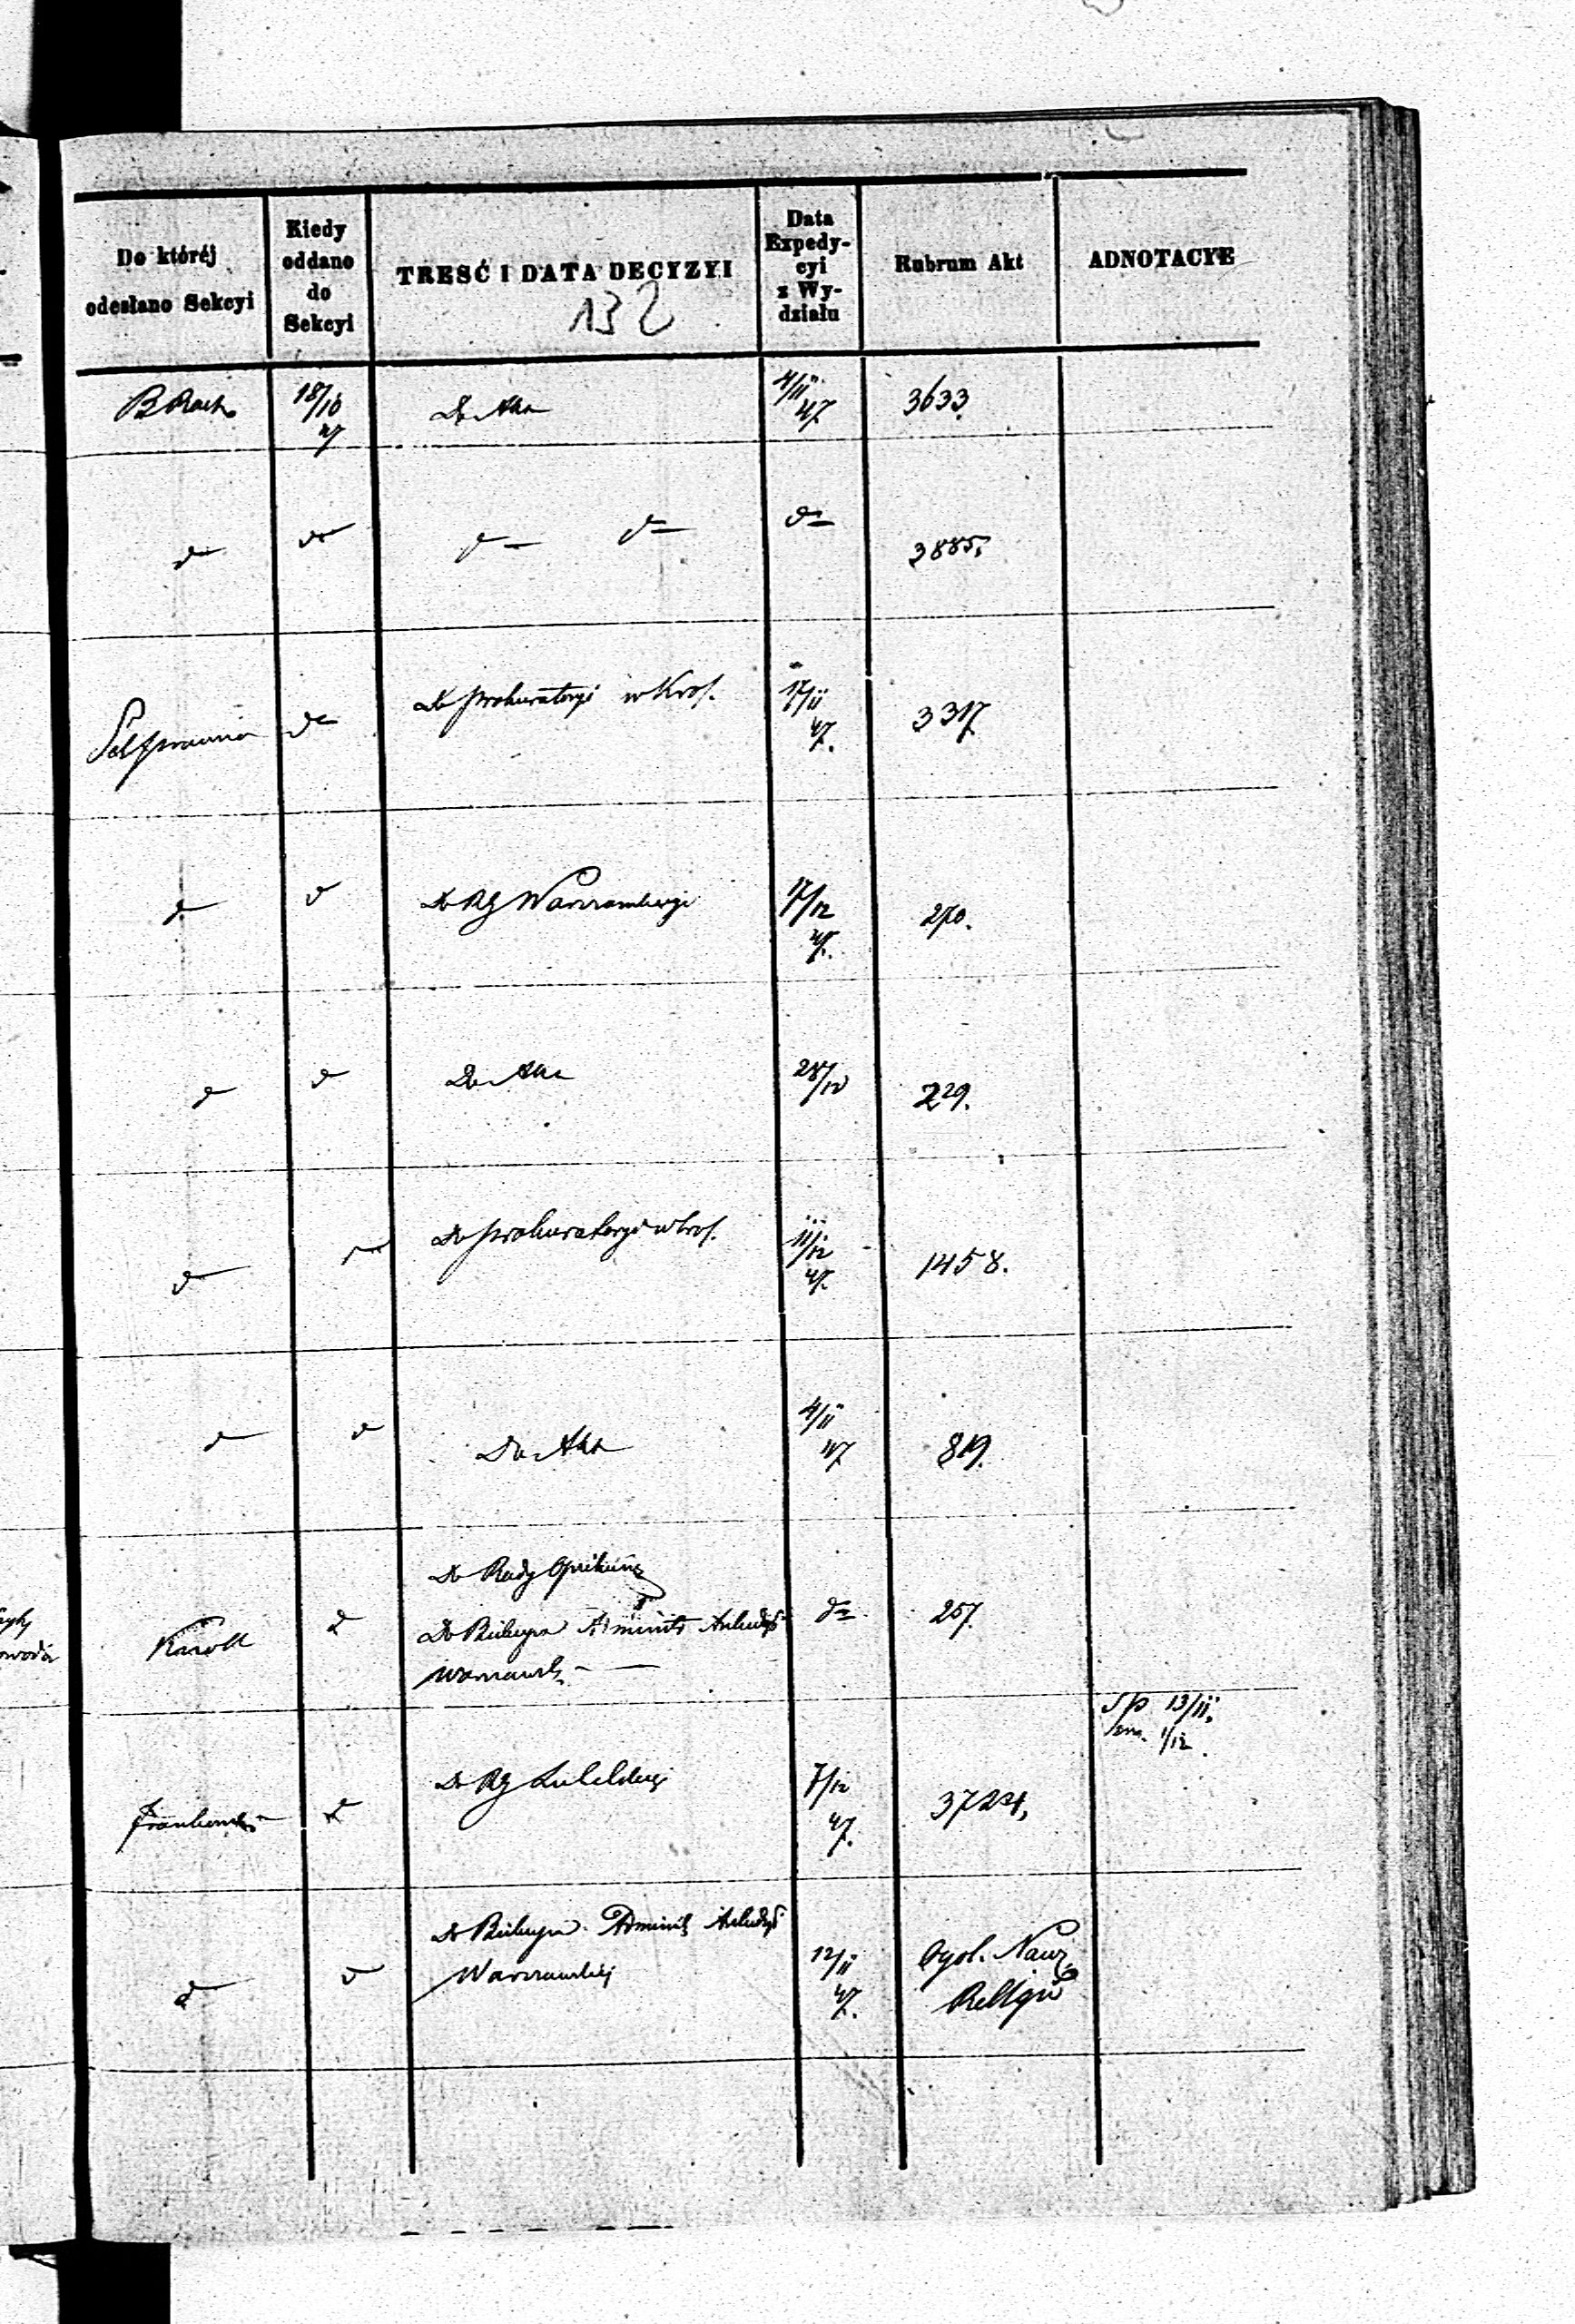 Do któréj
odesłano Sekcyi
Kiedy
oddano
do
Sekcyi
TREŚĆ I DATA DECYZYI
132
Data
Expedy-
cyi
z Wy-
działu
Rubrum Akt
ADNOTACYE
18/10
47
Do Akt
4/11
47
3633.
do
do
do do
do
3885.
do
Do Prokuratoryi w Król.
17/11
47.
3317
do
do
Do RG Warszawskiego
17/12
47.
270.
do
do
Do Akt
28/12
229.
do
Do Prokuratoryi w Król.
11/12
47.
1458.
do
do
Do Akt
4/11
47
819.
Karoll
do
Do Rady Opiekuńcz
Do Biskupa Administ Archidyec
Warszawsk
do
257.
do
Do RG Lubelskiego
7/12
47.
3724,
13/11,
1/12.
do
do
Do Biskupa Administ Archidyec
Warszawskiej
12/11
47.
Ogól. Nauz.
Religii